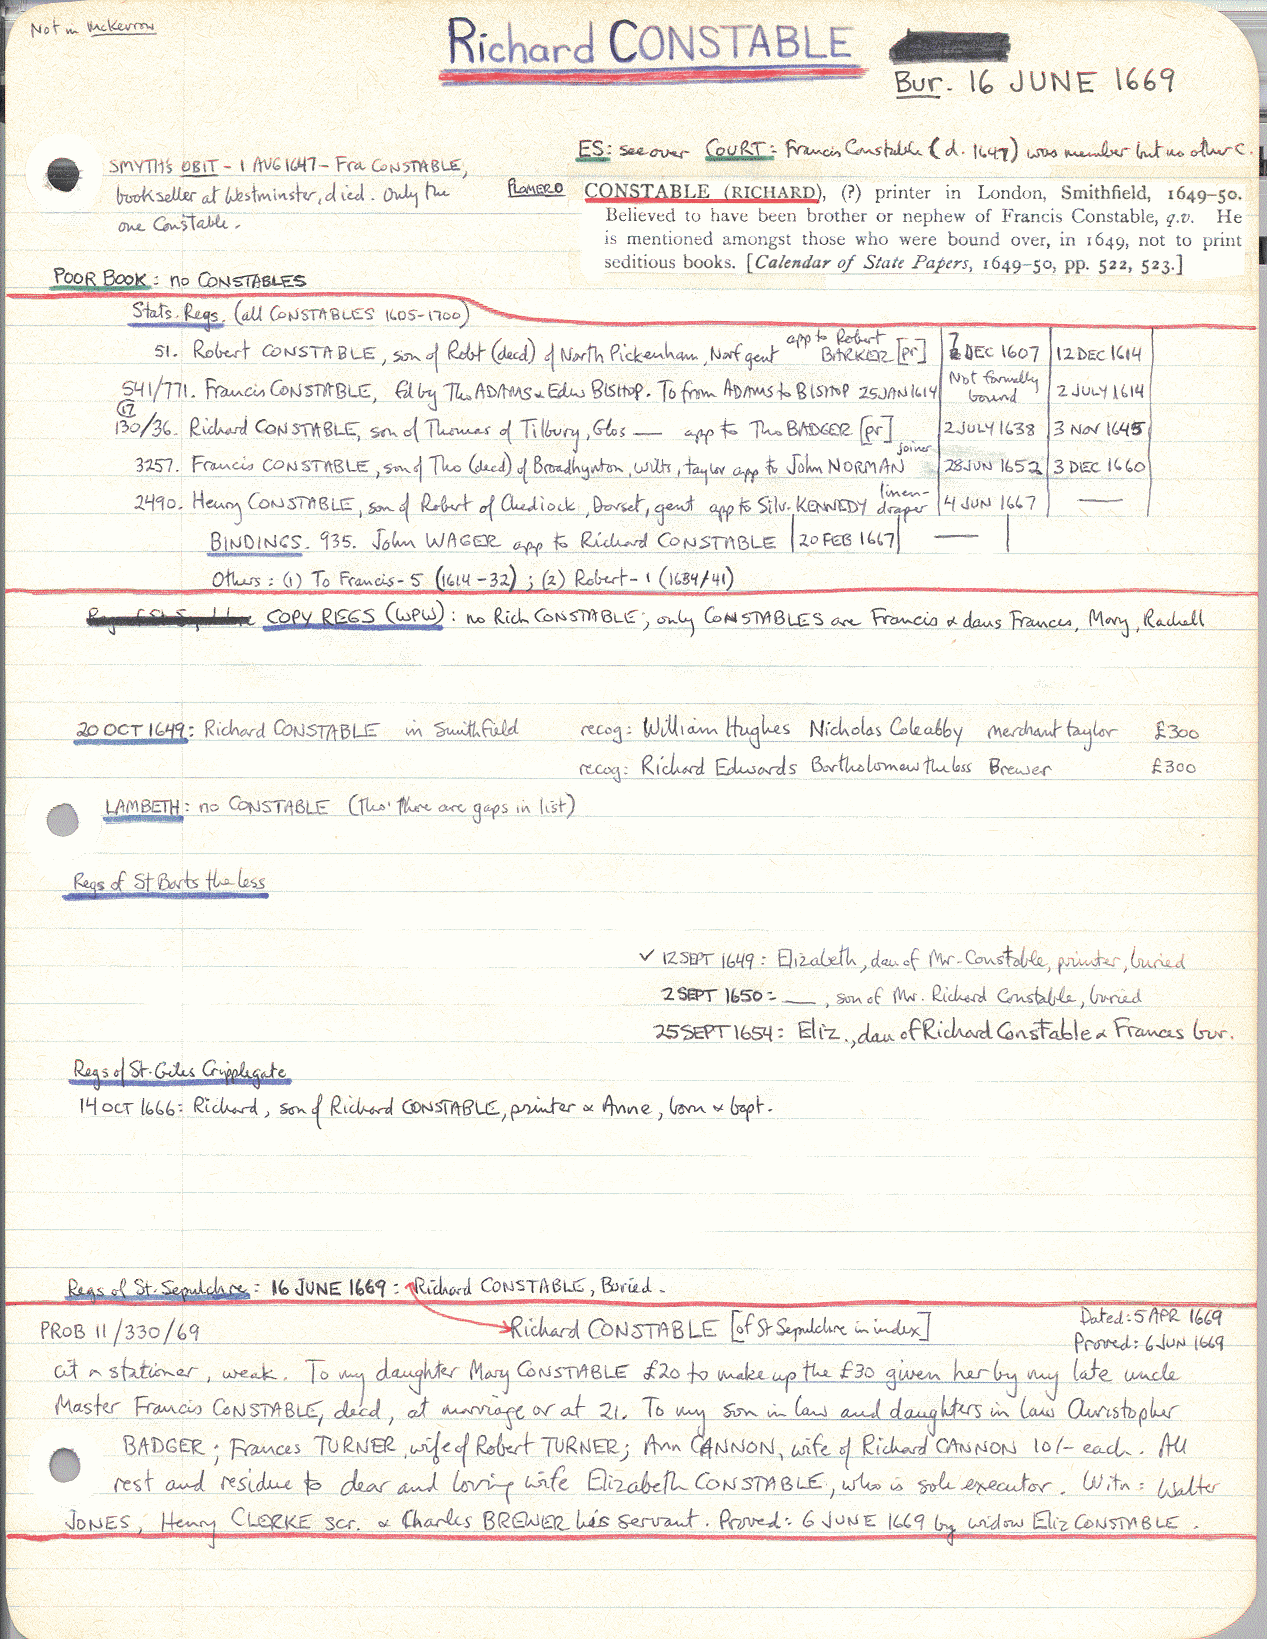 Not in McKerrow
Richard CONSTABLE
Bur. 16 JUNE 1669
ES: see over COURT: Francis Constable (d. 1647) was member but no other C.
SMYTH'S OBIT - 1 AUG 1647 - Fra CONSTABLE,
bookseller at Westminster, died. Only the
one Constable.
PLOMER CONSTABLE (RICHARD), (?) printer in London, Smithfield, 1649–50.
Believed to have been brother or nephew of Francis Constable, q.v. He
is mentioned amongst those who were bound over, in 1649, not to print
seditious books. [Calendar of State Papers, 1649–50, pp. 522, 523.]
POOR BOOK: no CONSTABLES
Stats. Regs. (all CONSTABLES 1605-1700)
51. Robert CONSTABLE, son of Robt (decd) of North Pickenham, Norf gent app to Robert BARKER [pr] 7 DEC 1607 12 DEC 1614
541/771. Francis CONSTABLE, fd by Tho ADAMS & Edw BISHOP. To from ADAMS to BISHOP 25 JAN 1614 Not formally bound 2 JULY 1614
17
130/36. Richard CONSTABLE, son of Thomas of Tilbury, Glos — app to Tho BADGER [pr] 2 JULY 1638 3 NOV 1645
3257. Francis CONSTABLE, son of Tho (decd) of Broadhynton, Wilts, taylor app to John NORMAN joiner 28 JUN 1652 3 DEC 1660
2490. Henry CONSTABLE, son of Robert of Chediock, Dorset, gent app to Silv. KENNEDY linen-draper 4 JUN 1667 —
BINDINGS. 935. John WAGER app to Richard CONSTABLE 20 FEB 1667 —
Others: (1) To Francis - 5 (1614-32); (2) Robert - 1 (1634/41)
COPY REGS (WPW): no Rich CONSTABLE; only CONSTABLES are Francis & daus Frances, Mary, Rachell
20 OCT 1649: Richard CONSTABLE in Smithfield recog: William Hughes Nicholas Coleabby merchant taylor £300
recog: Richard Edwards Bartholomew the less Brewer £300
LAMBETH: no CONSTABLE (Tho' there are gaps in list)
Regs of St Barts the Less
✓ 12 SEPT 1649: Elizabeth, dau of Mr. Constable, printer, buried
2 SEPT 1650: —, son of Mr. Richard Constable, buried
25 SEPT 1654: Eliz., dau of Richard Constable & Frances bur.
Regs of St. Giles Cripplegate
14 OCT 1666: Richard, son of Richard CONSTABLE, printer & Anne, born & bapt.
Regs of St. Sepulchre: 16 JUNE 1669: Richard CONSTABLE, Buried.
PROB 11/330/69 Richard CONSTABLE [of St Sepulchre in index] Dated: 5 APR 1669
Proved: 6 JUN 1669
cit & stationer, weak. To my daughter Mary CONSTABLE £20 to make up the £30 given her by my late uncle
Master Francis CONSTABLE, decd, at marriage or at 21. To my son in law and daughters in law Christopher
BADGER; Frances TURNER, wife of Robert TURNER; Ann CANNON, wife of Richard CANNON 10/- each. All
rest and residue to dear and loving wife Elizabeth CONSTABLE, who is sole executor. Witn: Walter
JONES, Henry CLERKE scr. & Charles BREWER his servant. Proved: 6 JUNE 1669 by widow Eliz CONSTABLE.